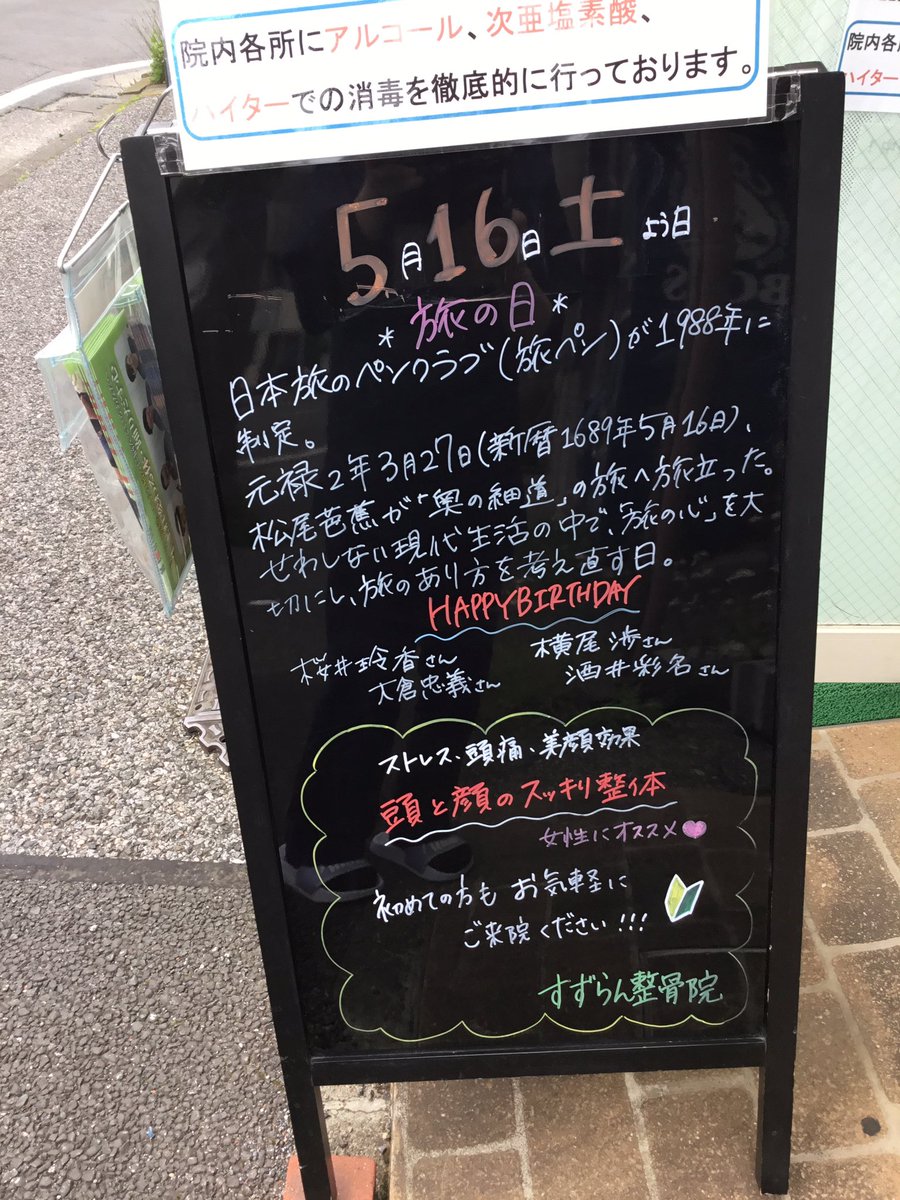 院内各所にアルコール、次亜塩素酸、
ハイターでの消毒を徹底的に行っております。
院内各
ハイター
5月16日土よう日
*旅の日*
日本旅のペンクラブ(旅ペン)が1988年に
制定。
元禄2年3月27日(新暦1689年5月16日)、
松尾芭蕉が「奥の細道」の旅へ旅立った。
せわしない現代生活の中で、「旅の心」を大
切にし、旅のあり方を考え直す日。
HAPPYBIRTHDAY
桜井玲香さん
横尾渉さん
大倉忠義さん
酒井彩名さん
ストレス、頭痛、美顔効果
頭と顔のスッキリ整体
女性にオススメ♥
初めての方もお気軽に
ご来院ください!!!
すずらん整骨院